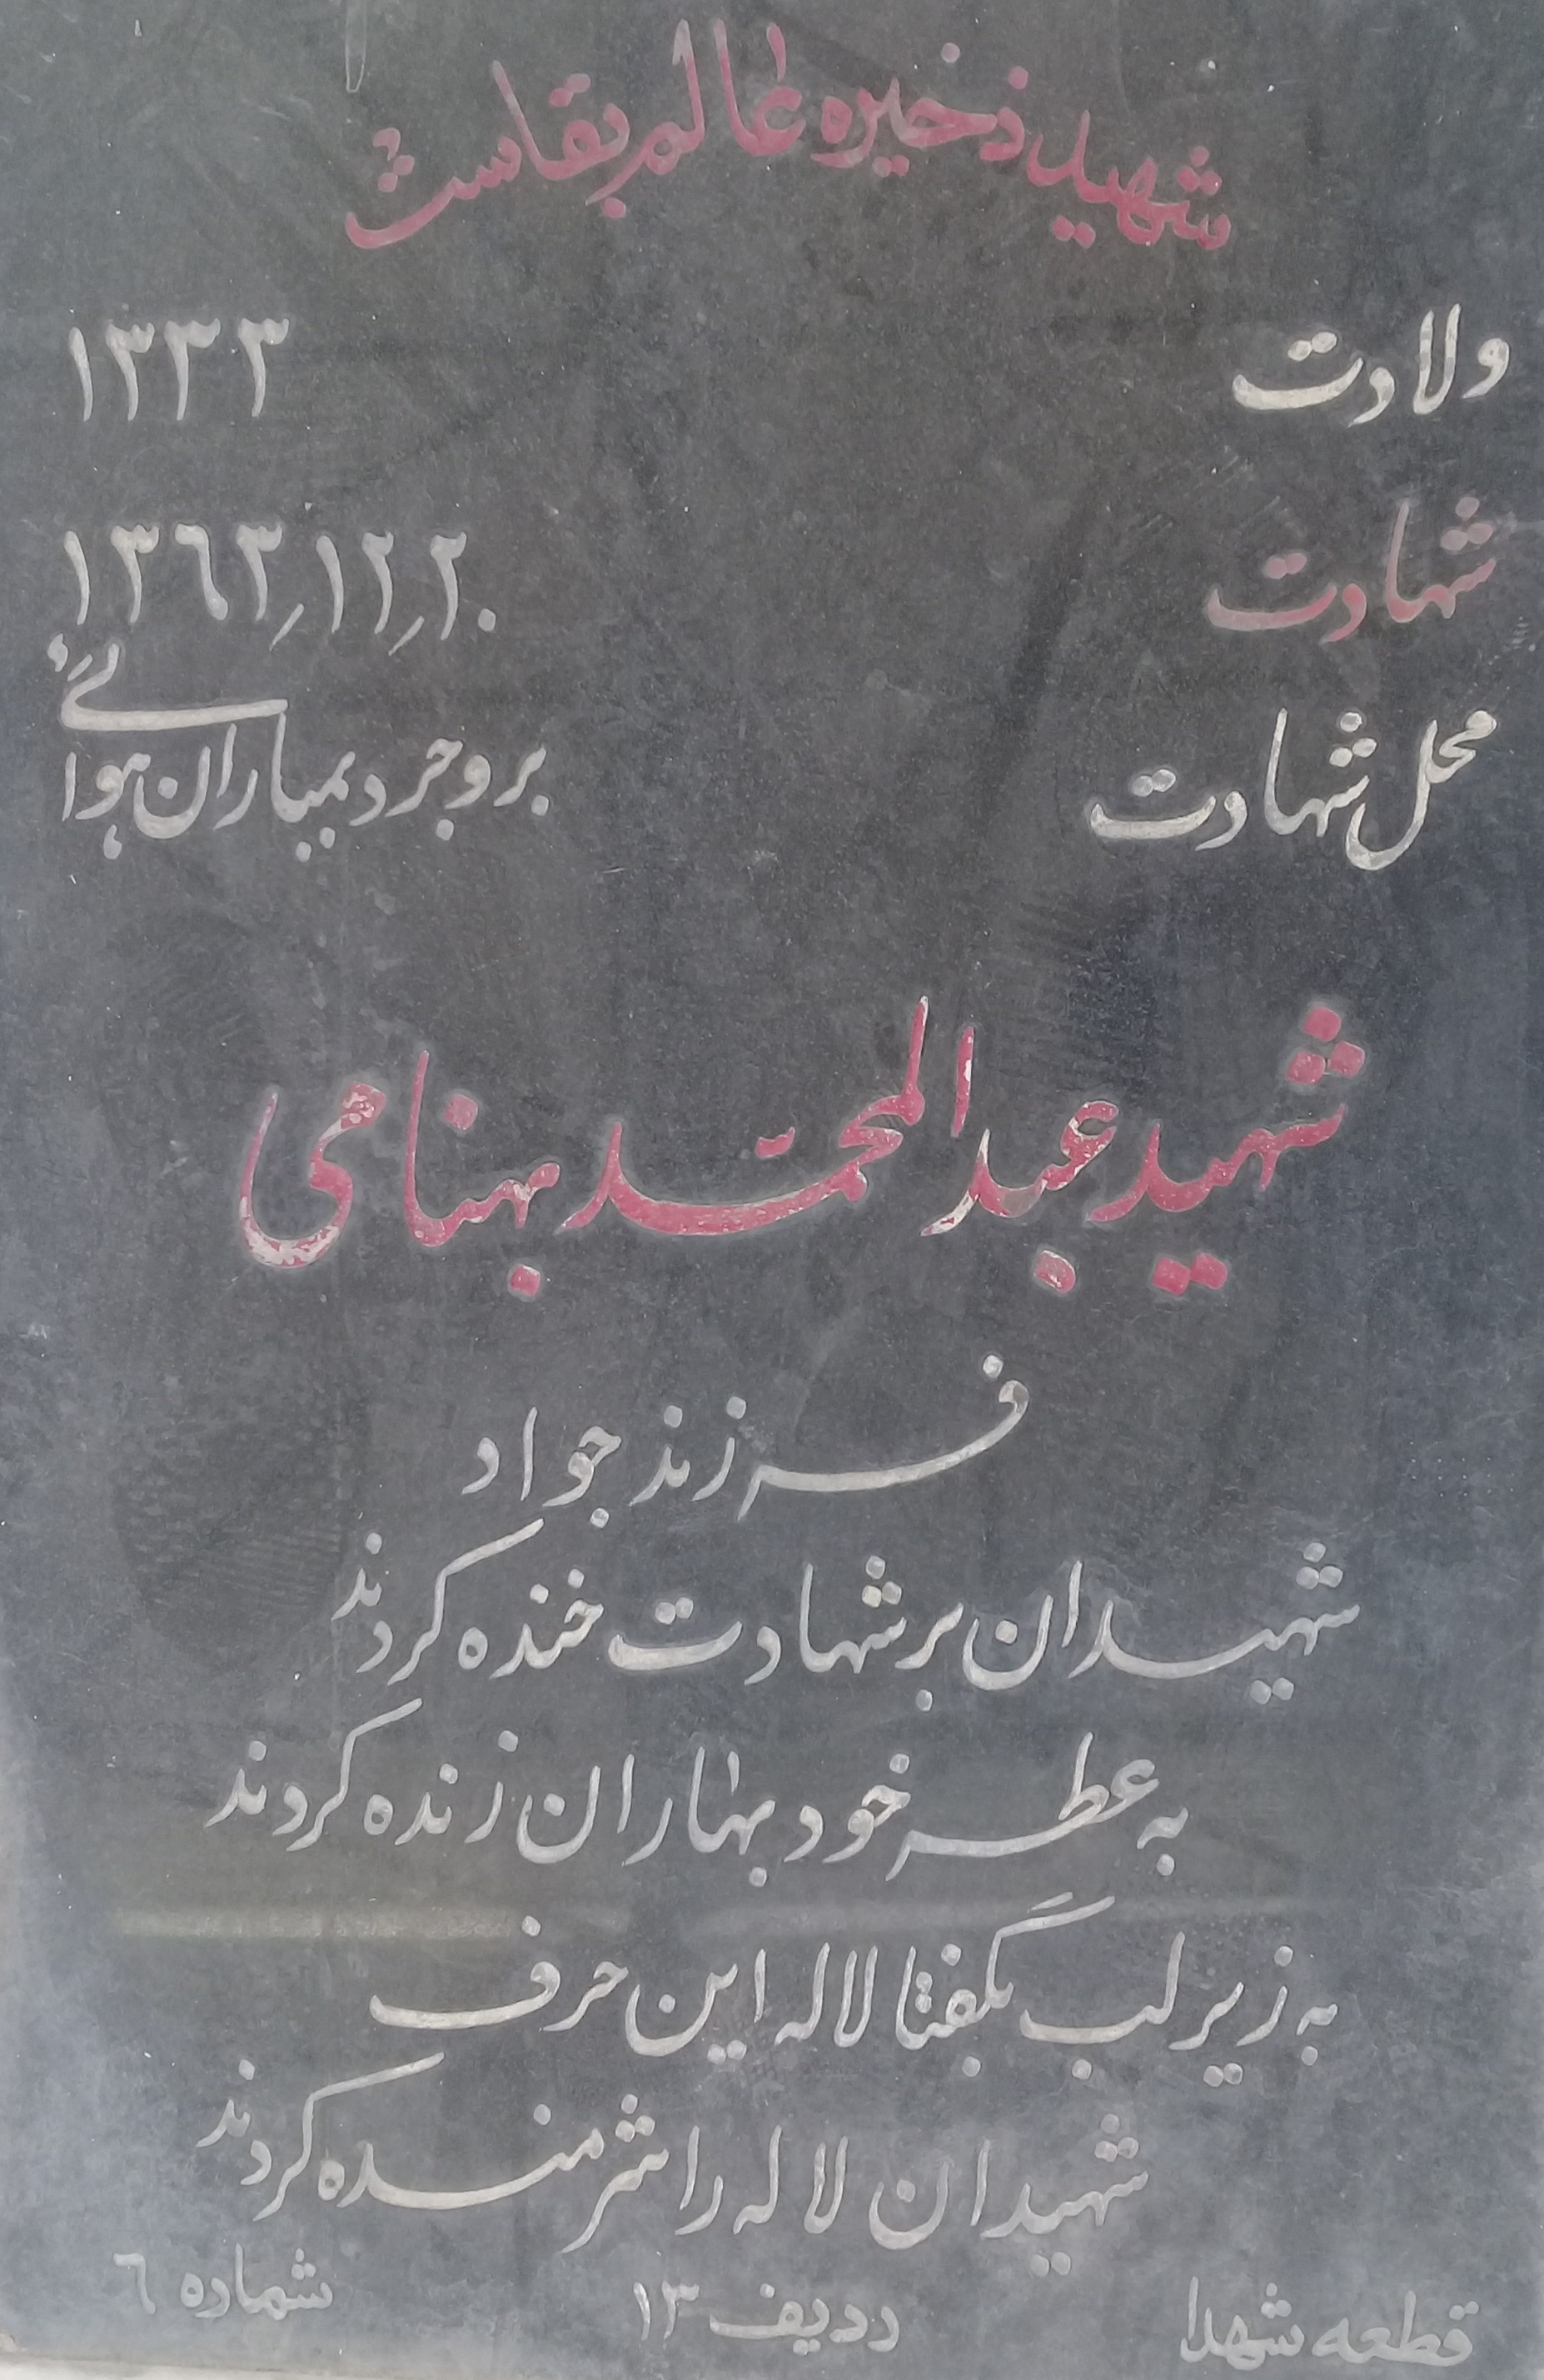 شهید ذخیره عالم بقاست
ولادت ۱۳۳۳
شهادت ۱۳٦۳٫۱۲٫۲۰
محل شهادت بروجرد بمباران هوائی
شهید عبدالمحمّد بهنامی
فرزند جواد
شهیدان بر شهادت خنده کردند
به عطر خود بهاران زنده کردند
به زیر لب بگفتا لاله این حرف
شهیدان لاله را شرمنده کردند
قطعه شهدا ردیف ۱۳ شماره ٦